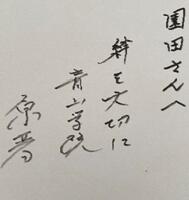 園田さんへ
絆を大切に
青山学院
原晋